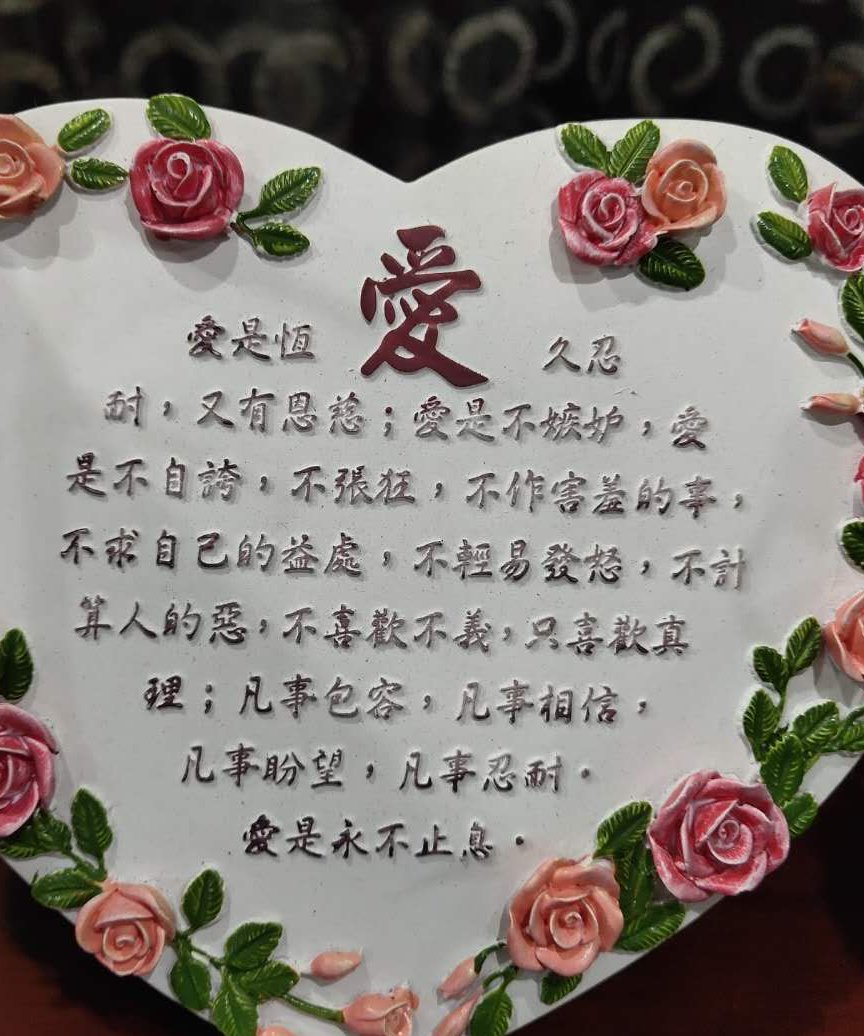 愛
愛是恆 久忍
耐，又有恩慈；愛是不嫉妒，愛
是不自誇，不張狂，不作害羞的事，
不求自己的益處，不輕易發怒，不計
算人的惡，不喜歡不義，只喜歡真
理；凡事包容，凡事相信，
凡事盼望，凡事忍耐。
愛是永不止息。